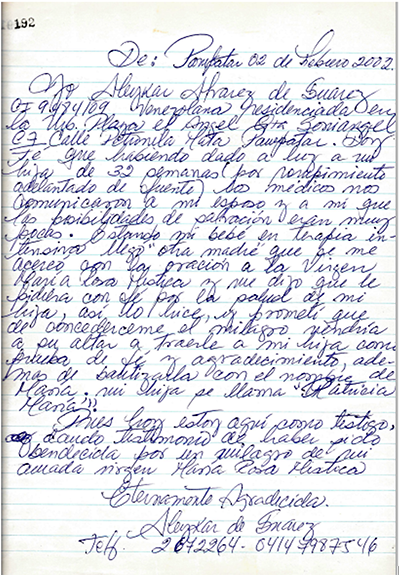 192
De: Pampatar 02 de Febrero 2002.
Yo Aleyxlar Alvarez de Suarez
CI 9.484109 Venezolana residenciada en
la Urb. Plaza el Angel Qta
07 Calle Petronila Mata Pampatar. Doy
Fe que habiendo dado a luz a mi
hija de 32 semanas por rompimiento
adelantado de fuente, los médicos nos
comunicaron a mi esposo y a mi que
las posibilidades de salvación eran muy
pocas. Estando mi bebé en terapia in-
tensiva llego "otra madre" que se me
acerco con la oración a la Virgen
Maria Rosa Mistica y me dijo que le
pidiera con fe por la salud de mi
hija, asi, lo hice, y prometi que
de concederceme el milagro vendria
a su altar a traerle a mi hija como
prueba de fé y agradecimiento, ade-
mas de bautizarla con el nombre de
Maria. mi hija se llama "Patricia
Maria".
Pues hoy estoy aqui como testigo,
dando testimonio de haber sido
bendecida por un milagro de mi
amada virgen Maria Rosa Mistica
Eternamente Agradecida.
Aleyxlar de Suárez
Telf. 2672264 - 04147987546